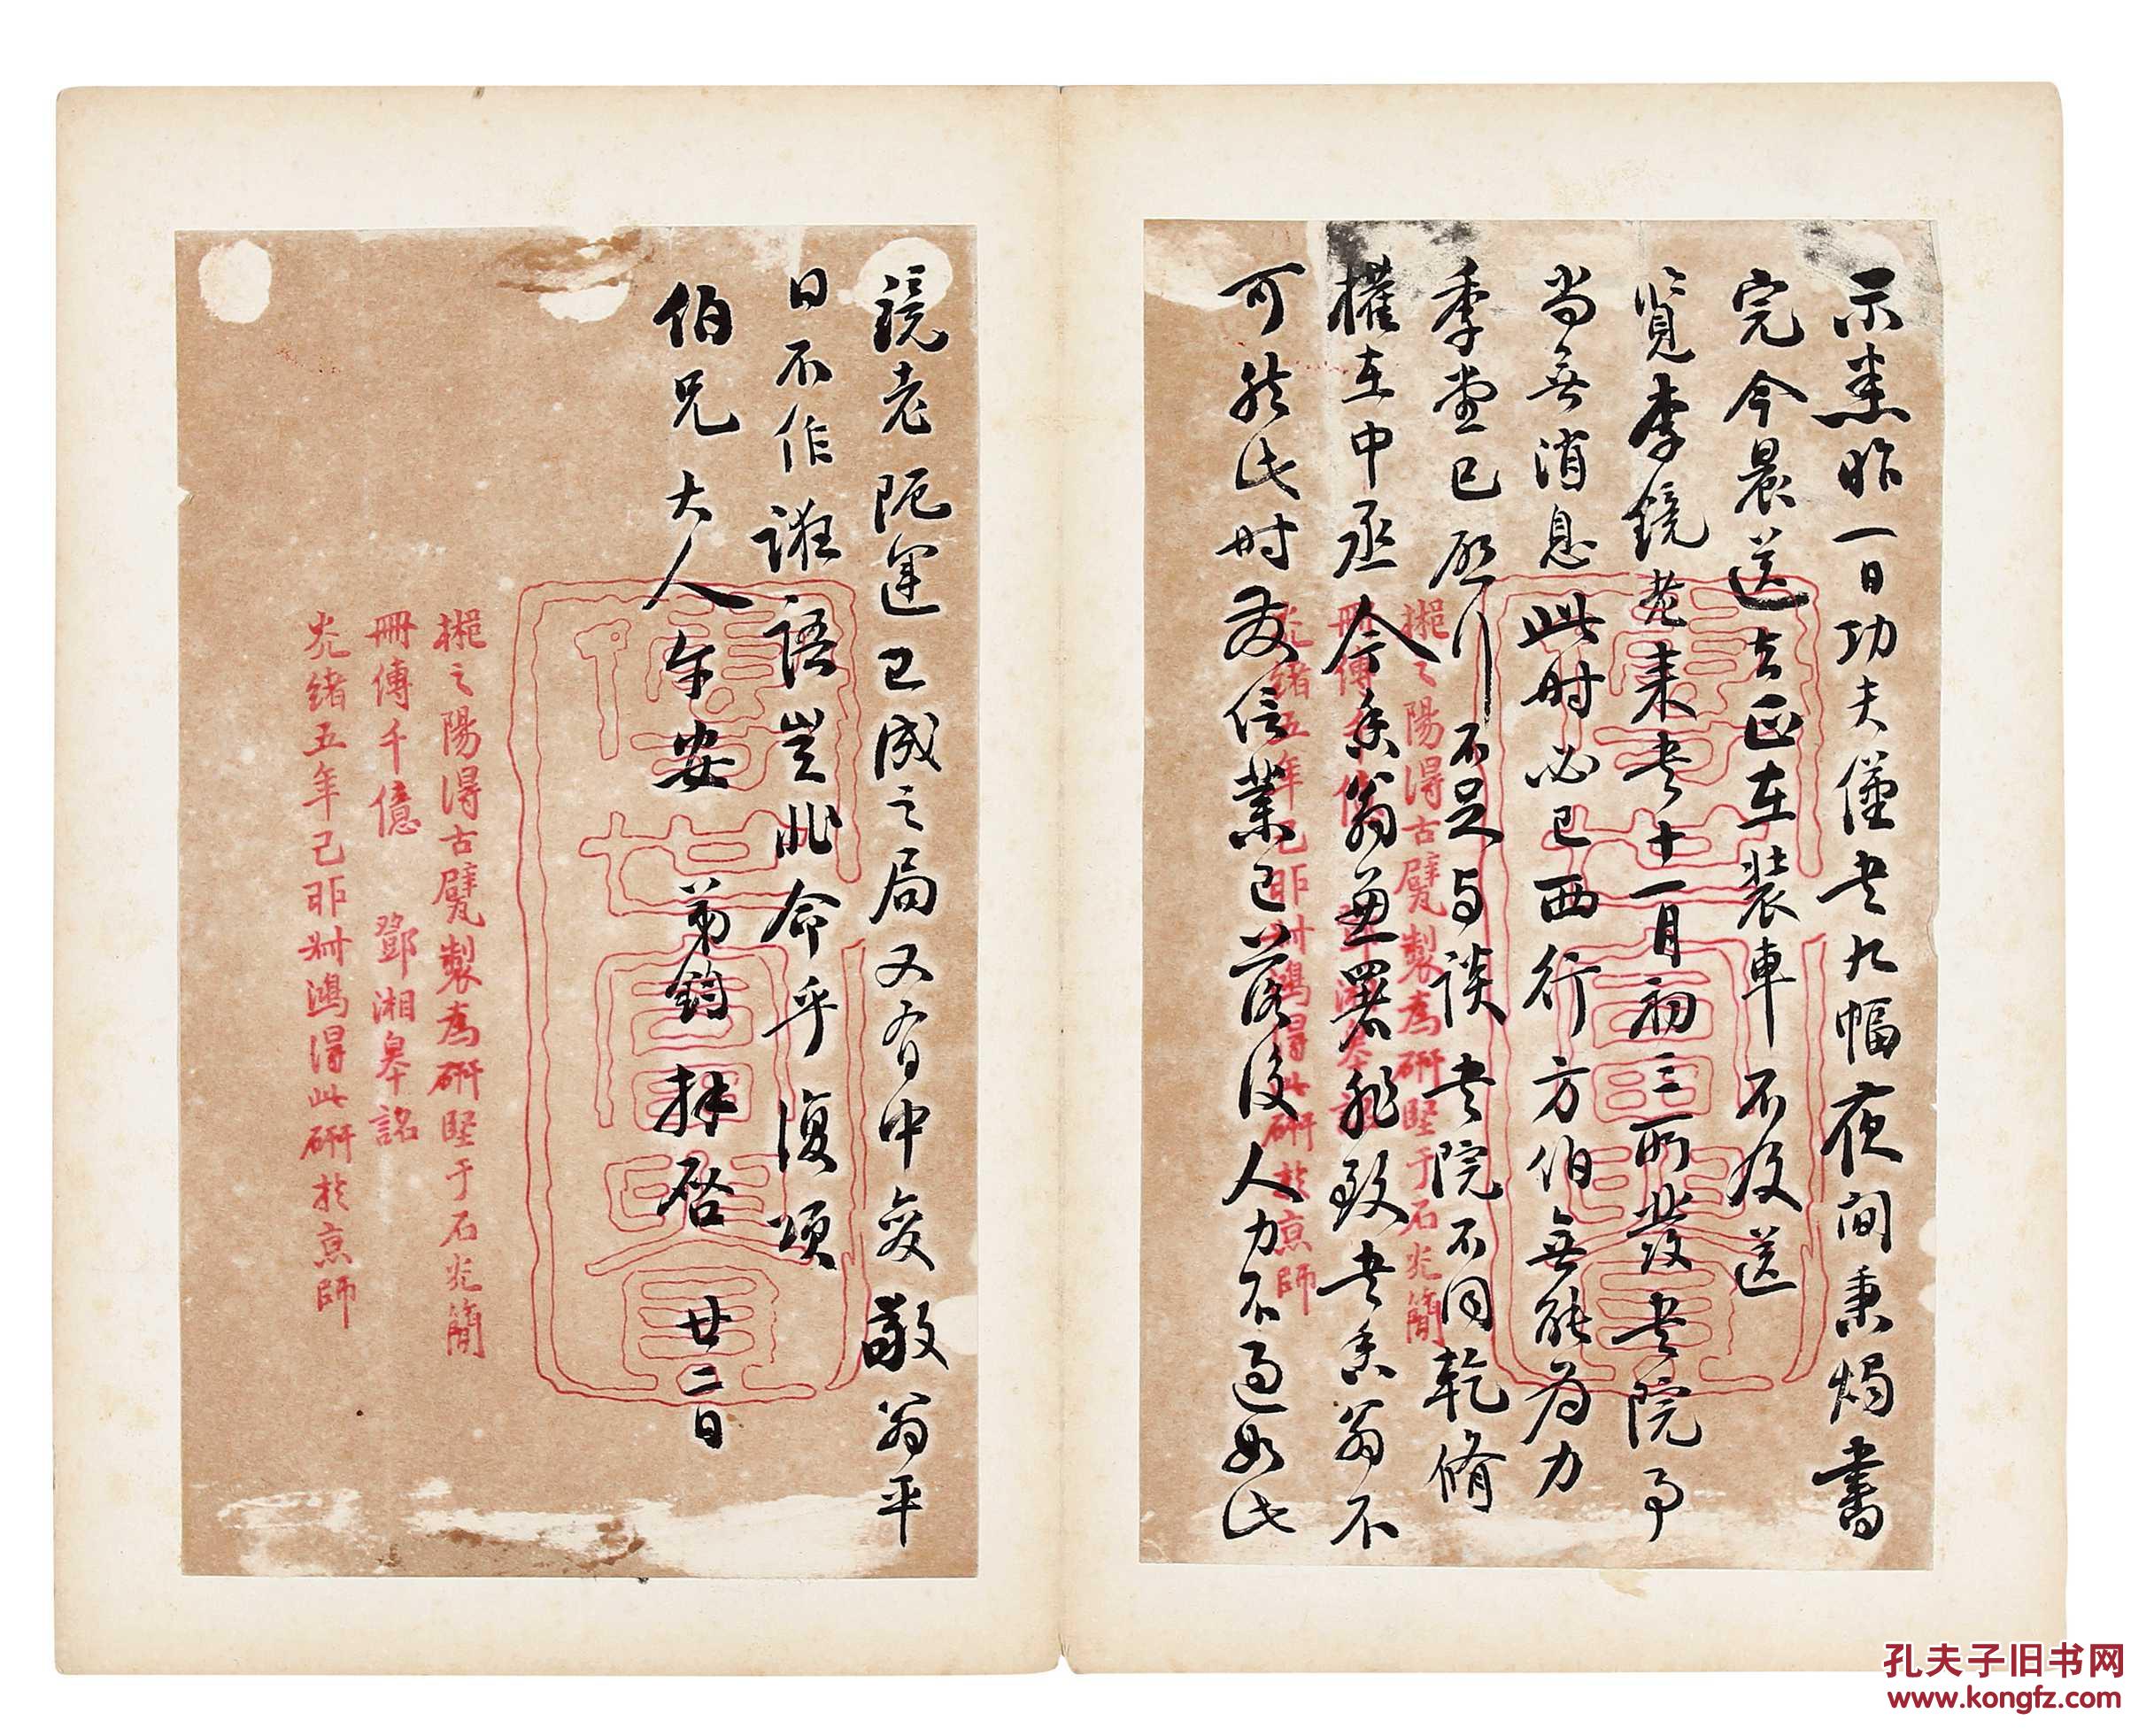 示悉昨一日功夫僅書九幅夜間秉燭書
完今晨送去正在裝車不及送
覽李鏡老来書十一月初三所發書院事
尚無消息此时必已西行方伯無能为力
季堂已啓行不足与談書院不同乾脩
權在中丞今香翁兼署非致書香翁不
可然此时發信業已落後人力不過如此
鏡老阨運已成之局又有中变敬翁平
日不作誑語豈非命乎復頌
伯兄大人午安 弟鈞拜啓 廿二日
之陽得古甓製為硏堅于石光簡
冊傳千億 鄧湘皋銘
光緒五年己卯 鴻得此硏於京師
之陽得古甓製為硏堅于石光簡
冊傳千億 鄧湘皋銘
光緒五年己卯 鴻得此硏於京師
孔夫子旧书网
www.kongfz.com